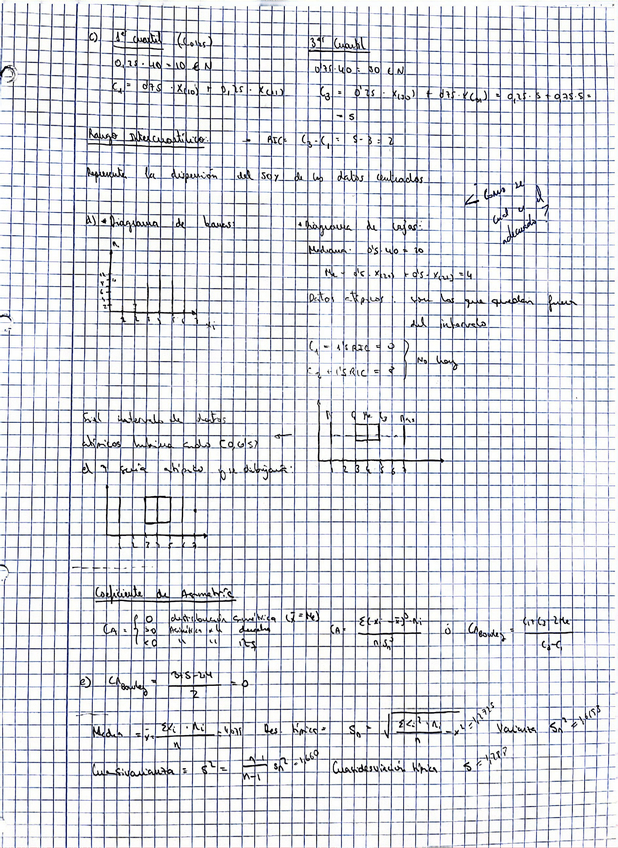 c) 1er cuartil (C0,25)
0,25·40=10 ∈ N
C1 = 0'75 · X(10) + 0,25 · X(11)
3er Cuartil
0'75·40 = 30 ∈ N
C3 = 0'25 · X(30) + 0'75·X(31) = 0,25·5+0,75·5=
= 5
Rango Intercuartílico:
RIC= C3-C1 = 5-3=2
Representa la dispersión del 50% de los datos centrados
d) • Diagrama de barras:
1 2 3 4 5 6 7 xi
• Diagrama de cajas:
Mediana: 0'5·40=20
Me = 0'5·X(20) + 0'5·X(21) = 4
Datos atípicos: son los que quedan fuera
del intervalo
C1 - 1'5 RIC = 0
+ 1'5 RIC = 8
No hay
C1 Me C3
1 2 3 4 5 6 7
Si el intervalo de datos
atípicos hubiera sido (0,6'5)
el 7 sería atípico y se dibujaría:
Coeficiente de Asimetría
CA = 0 distribución simétrica (x̄ = Me)
>0 Asimétrica a la derecha
<0 " " izq
CA = Σ(xi - x̄)³·ni / n·Sn³ ó CABowley = C1+C3-2Me / C3-C1
e) CABowley = 3+5-2·4 / 2 = 0
Media = x̄ = Σxi · ni / n = 4,075 Des. típica = Sn = √(Σxi²·ni / n - x̄²) Varianza Sn²
Cuasivarianza = S² = Sn² = 1,660 Cuasidesviación típica S =